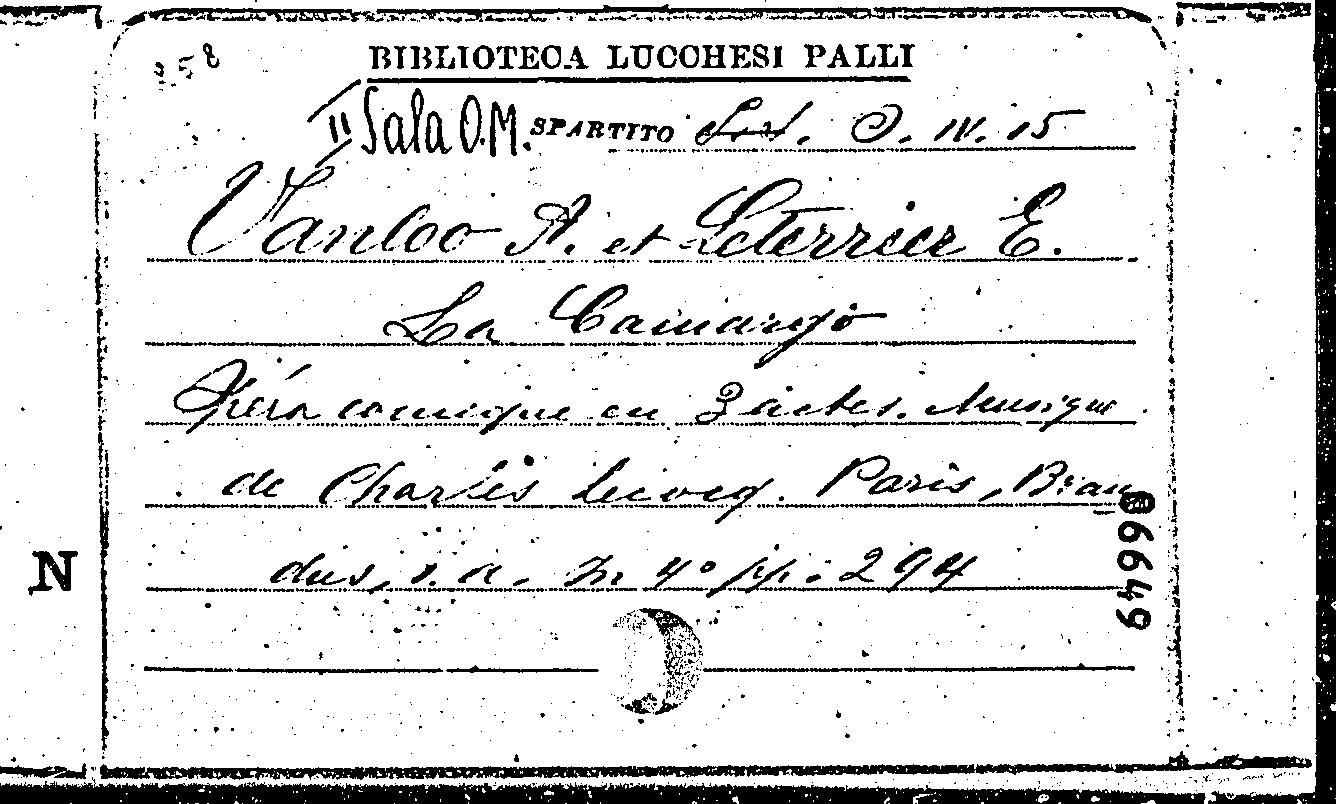 358
BIBLIOTECA LUCCHESI PALLI
II Sala O.M. SPARTITO O. IV. 15
Vanloo A. et Leterrier E.
La Camargo
Opéra comique en 3 actes. Musique
de Charles Lecocq. Paris, Bran
dus, s. a. In 4° pp. 294
N
06649